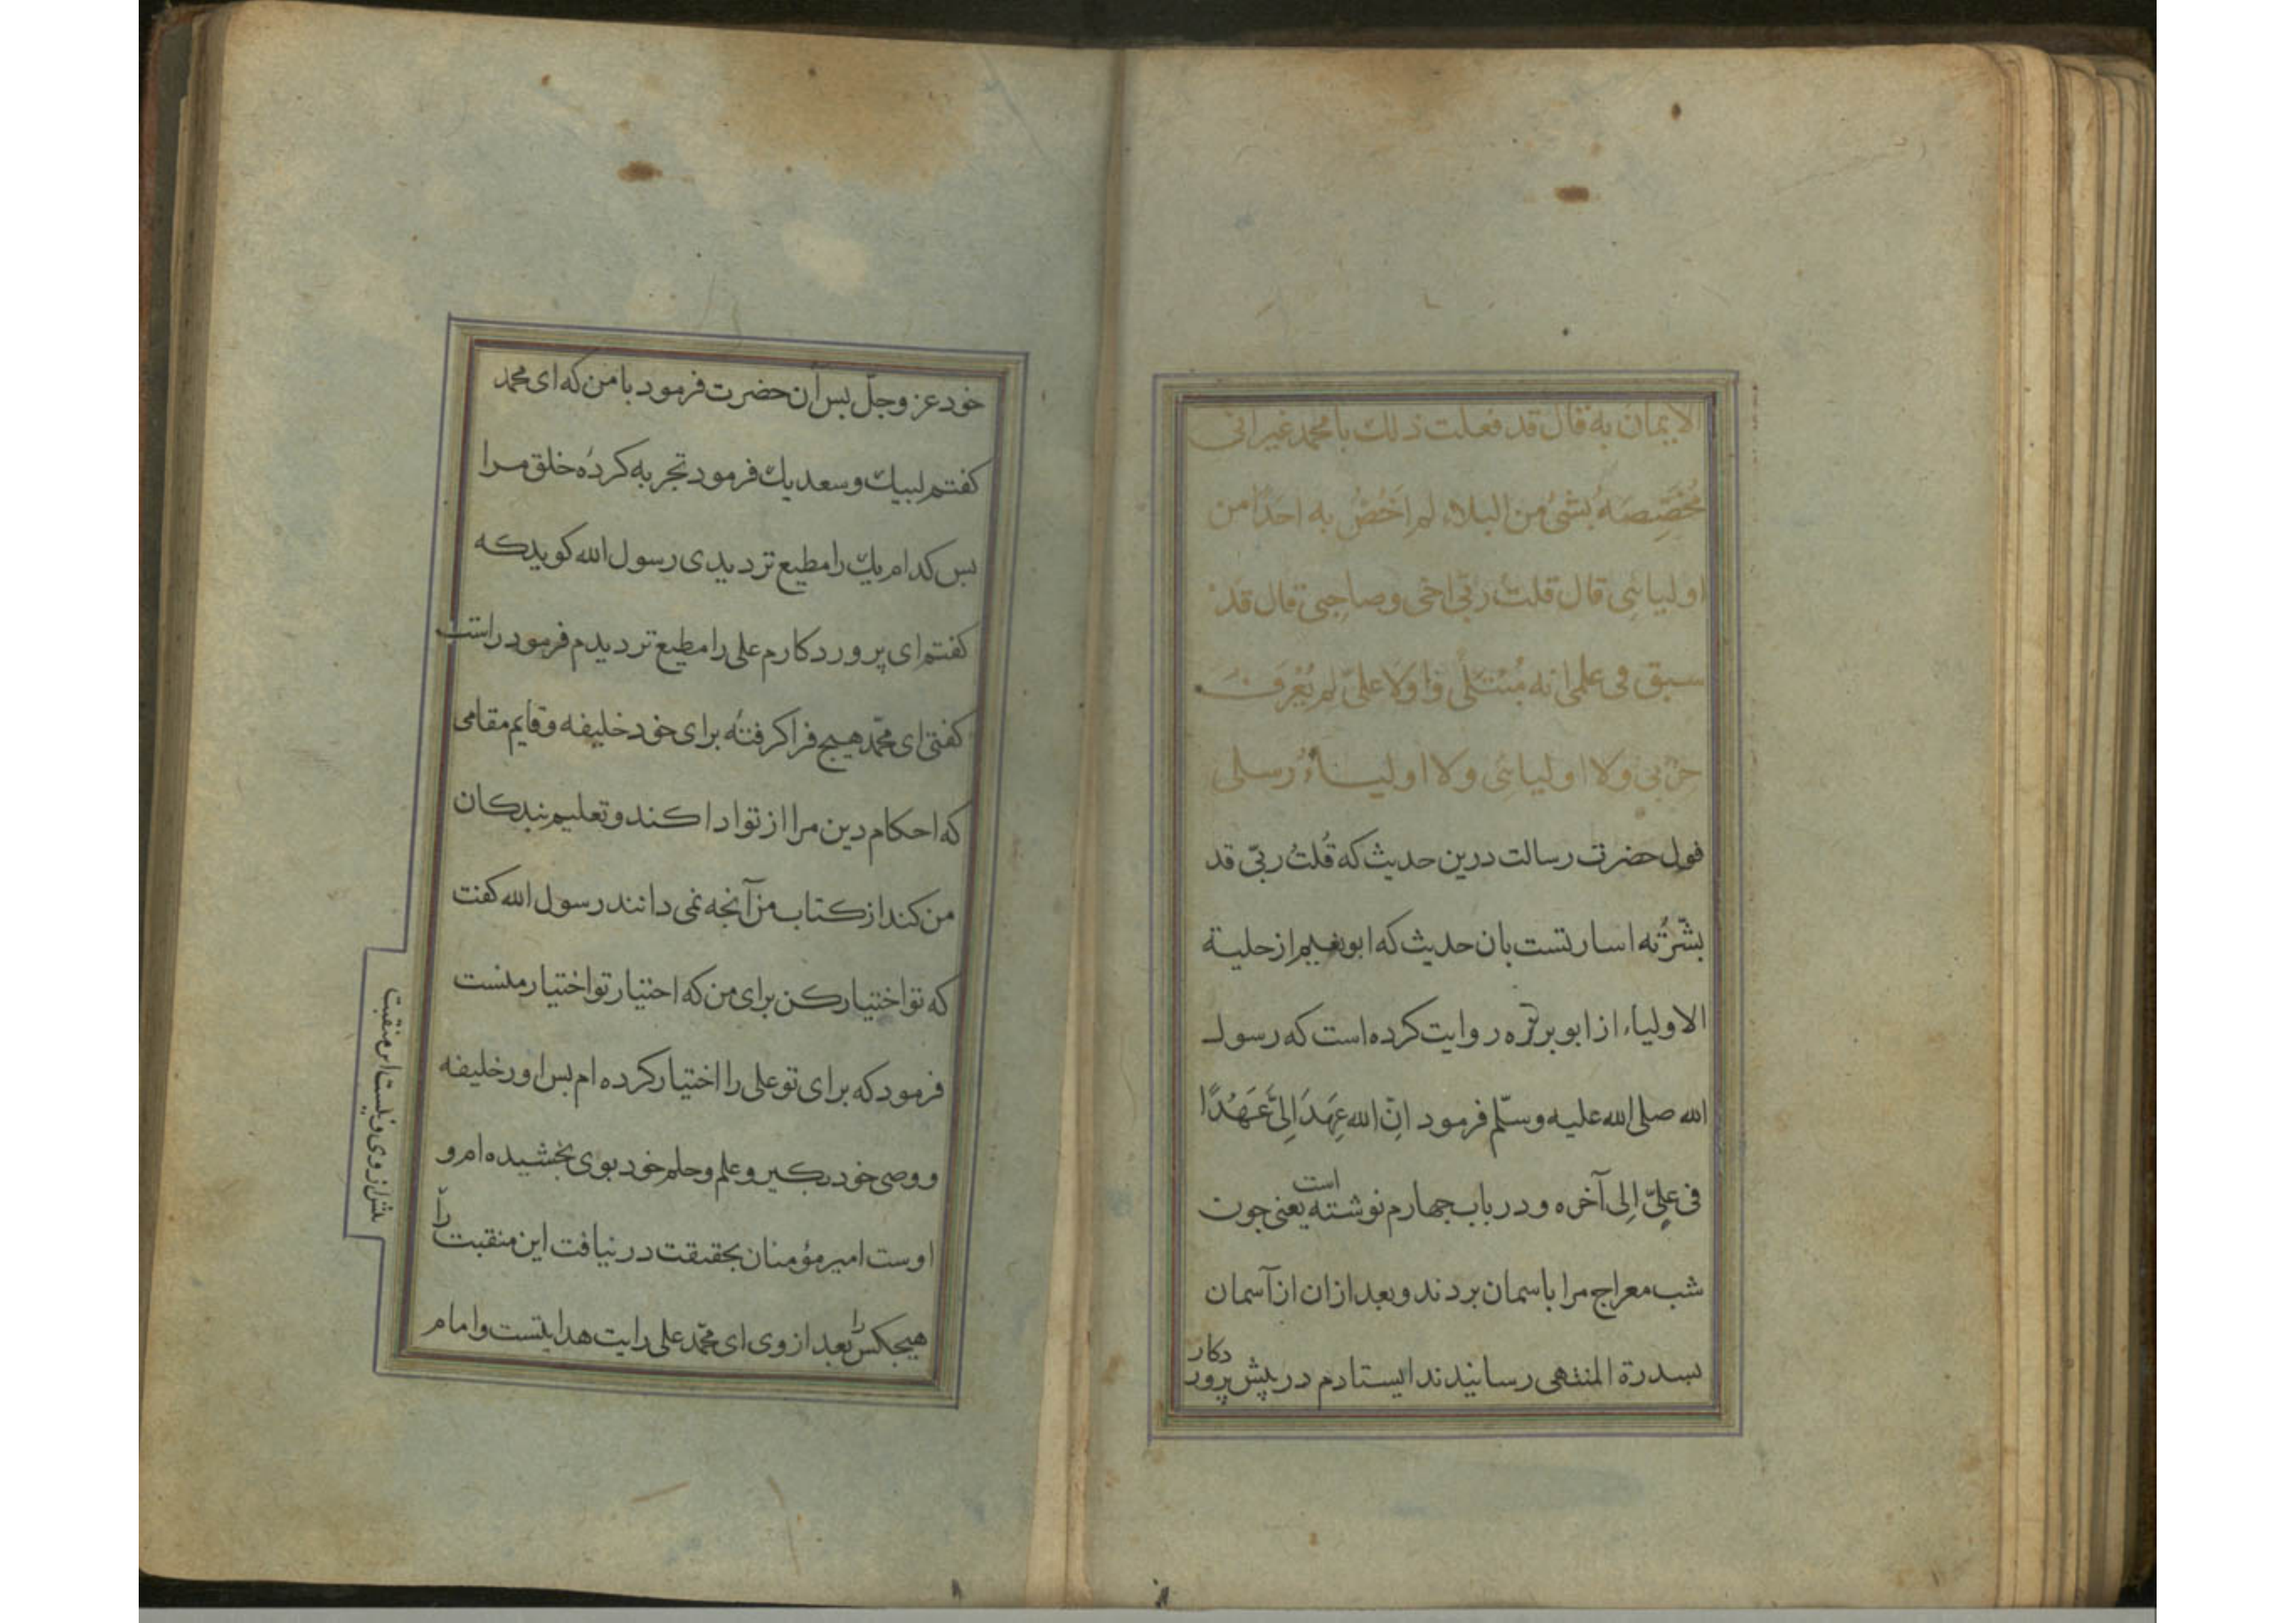 الایمان به قال قد فعلت ذلك یا محمد غیر انی
مُخَصِّصَهُ بشیُ من البلاء لم اَخُصُّ به احَدًا من
اولیائی قال قلت ربّی اخی وصاحِبی قال قد
سبق فی علمی انه مُبْتَلًی ولولا علیّ لم یُعْرَف
حزبی ولا اولیائی ولا اولیاءُ رسلی
قول حضرت رسالت درین حدیث که قُلتُ ربّی قد
بشّرتُه اسارتست بان حدیث که ابونعیم از حلیة
الاولیاء از ابو برزه روایت کرده است که رسول
الله صلی الله علیه وسلّم فرمود اِنّ الله عَهِدَ اِلیَّ عَهْدًا
فی علِیّ اِلی آخره ودر باب جهارم نوشته است یعنی جون
شب معراج مرا باسمان بردند وبعد ازان از آسمان
بسدرة المنتهی رسانیدند ایستادم در پیش پروردکار
خود عز وجلّ بس آن حضرت فرمود با من که ای محمد
کفتم لبیك وسعدیك فرمود تجربه کردهٔ خلق مرا
بس کدام یك را مطیع تر دیدی رسول الله کوید که
کفتم ای پروردکارم علی را مطیع تر دیدم فرمود راست
کفتی ای محمّد هیچ فراکرفتهٔ برای خود خلیفه وقایم مقامی
که احکام دین مرا از تو ادا کند وتعلیم بندکان
من کند از کتاب من آنجه نمی دانند رسول الله کفت
که تو اختیار کن برای من که اختیار تو اختیار منست
فرمود که برای تو علی را اختیار کرده ام بس اورخلیفه
ووصی خود بکیر وعلم وحلم خود بوی بخشیده ام و
اوست امیر مؤمنان بحقیقت در نیافت این منقبت را
هیجکس را بعد از وی ای محمّد علی رایت هدایتست وامام
پیش از وی ونیست این منقبت